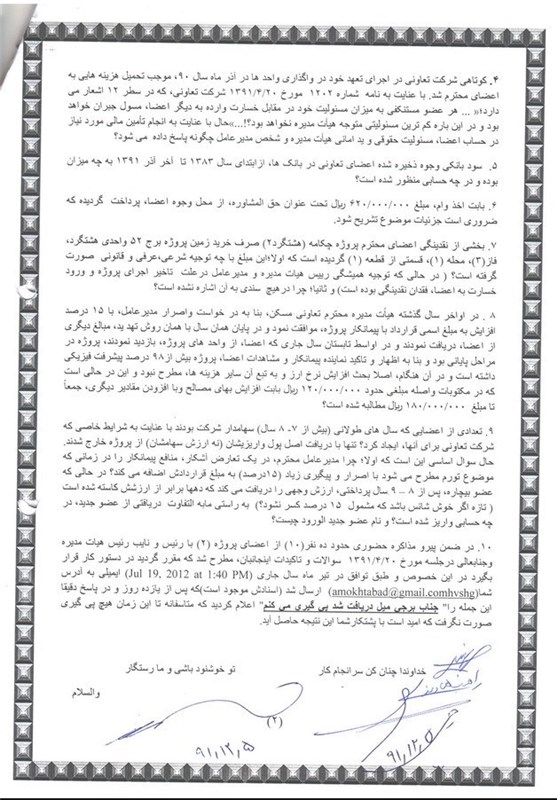 ۴. کوتاهی شرکت تعاونی در اجرای تعهد خود در واگذاری واحد ها در آذر ماه سال ۹۰، موجب تحمیل هزینه هایی به
اعضای محترم شد. با عنایت به نامه شماره ۱۲۰۲ مورخ ۱۳۹۱/۴/۲۰ شرکت تعاونی، که در سطر ۱۲ اشعار می
دارد؛« ... هر عضو مستنکفی به میزان مسئولیت خود در مقابل خسارت وارده به دیگر اعضا، مسول جبران خواهد
بود و در این باره کم ترین مسئولیتی متوجه هیأت مدیره نخواهد بود؟!...»حال با عنایت به انجام تأمین مالی مورد نیاز
در حساب اعضا، مسئولیت حقوقی و ید امانی هیأت مدیره و شخص مدیرعامل چگونه پاسخ داده می شود؟
۵. سود بانکی وجوه ذخیره شده اعضای تعاونی در بانک ها، ازابتدای سال ۱۳۸۳ تا آخر آذر ۱۳۹۱ به چه میزان
بوده و در چه حسابی منظور شده است؟
۶. بابت اخذ وام، مبلغ ۶۲۰/۰۰۰/۰۰۰ ریال تحت عنوان حق المشاوره، از محل وجوه اعضا، پرداخت گردیده که
ضروری است جزئیات موضوع تشریح شود.
۷. بخشی از نقدینگی اعضای محترم پروژه چکامه (هشتگرد۲) صرف خرید زمین پروژه برج ۵۲ واحدی هشتگرد،
فاز(۳)، محله (۱)، قسمتی از قطعه (۱) گردیده است که اولا؛این مبلغ با چه توجیه شرعی،عرفی و قانونی صورت
گرفته است؟ ( در حالی که توجیه همیشگی رییس هیات مدیره و مدیرعامل درعلت تاخیر اجرای پروژه و ورود
خسارت به اعضا، فقدان نقدینگی بوده است) و ثانیا؛ چرا درهیچ سندی به آن اشاره نشده است؟
۸ . در اواخر سال گذشته هیأت مدیره محترم تعاونی مسکن، بنا به در خواست واصرار مدیرعامل، با ۱۵ درصد
افزایش به مبلغ اسمی قرارداد با پیمانکار پروژه، موافقت نمود و در پایان همان سال با همان روش تهدید، مبالغ دیگری
از اعضا، دریافت نمودند و در اواسط تابستان سال جاری که اعضا، از واحد های پروژه، بازدید نمودند، پروژه در
مراحل پایانی بود و بنا به اظهار و تاکید نماینده پیمانکار و مشاهدات اعضاء پروژه بیش از۹۸ درصد پیشرفت فیزیکی
داشته است و در آن هنگام، اصلا بحث افزایش نرخ ارز و به تبع آن سایر هزینه ها، مطرح نبود و این در حالی است
که در مکتوبات واصله مبلغی حدود ۱۲۰/۰۰۰/۰۰۰ ریال بابت افزایش بهای مصالح وبا افزودن مقادیر دیگری، جمعاً
تا مبلغ ۱۸۰/۰۰۰/۰۰۰ ریال مطالبه شده است؟
۹. تعدادی از اعضایی که سال های طولانی (بیش از ۷- ۸ سال) سهامدار شرکت بودند با عنایت به شرایط خاصی که
شرکت تعاونی برای آنها، ایجاد کرد؟ تنها با دریافت اصل پول واریزیشان (نه ارزش سهامشان) از پروژه خارج شدند.
حال سوال اساسی این است که اولا؛ چرا مدیرعامل محترم، در یک تعارض آشکار، منافع پیمانکار را در زمانی که
موضوع تورم مطرح می شود با اصرار و پیگیری زیاد (۱۵درصد) به مبلغ قراردادش اضافه می کند؟ در حالی که
عضو بیچاره، پس از ۸ – ۹ سال پرداختی، ارزش وجهی را دریافت می کند که دهها برابر از ارزشش کاسته شده است
( تازه اگر خوش شانس باشد که مشمول ۱۵ درصد کسر نشود؟) به راستی مابه التفاوت دریافتی از عضو جدید، در
چه حسابی واریز شده است؟ و نام عضو جدید الورود چیست؟
۱۰. در ضمن پیرو مذاکره حضوری حدود ده نفر(۱۰) از اعضای پروژه (۲) با رئیس و نایب رئیس هیات مدیره
وجنابعالی درجلسه مورخ ۱۳۹۱/۴/۲۰ سوالات و تاکیدات اینجانبان، مطرح شد که مقرر گردید در دستور کار قرار
بگیرد در این خصوص و طبق توافق در تیر ماه سال جاری (Jul 19, 2012 at 1:40 PM) ایمیلی به آدرس
شما(amokhtabad@gmail.comhvshg) ارسال شد (اسنادش موجود است)که پس از یازده روز و در پاسخ دقیقا
این جمله را" جناب برجی میل دریافت شد پی گیری می کنم" اعلام کردید که متاسفانه تا این زمان هیچ پی گیری
صورت نگرفت که امید است با پشتکارشما این نتیجه حاصل آید.
خداوندا چنان کن سرانجام کار تو خوشنود باشی و ما رستگار
والسلام
(۲)
۹۱,۱۲,۵
۹۱,۱۲,۵